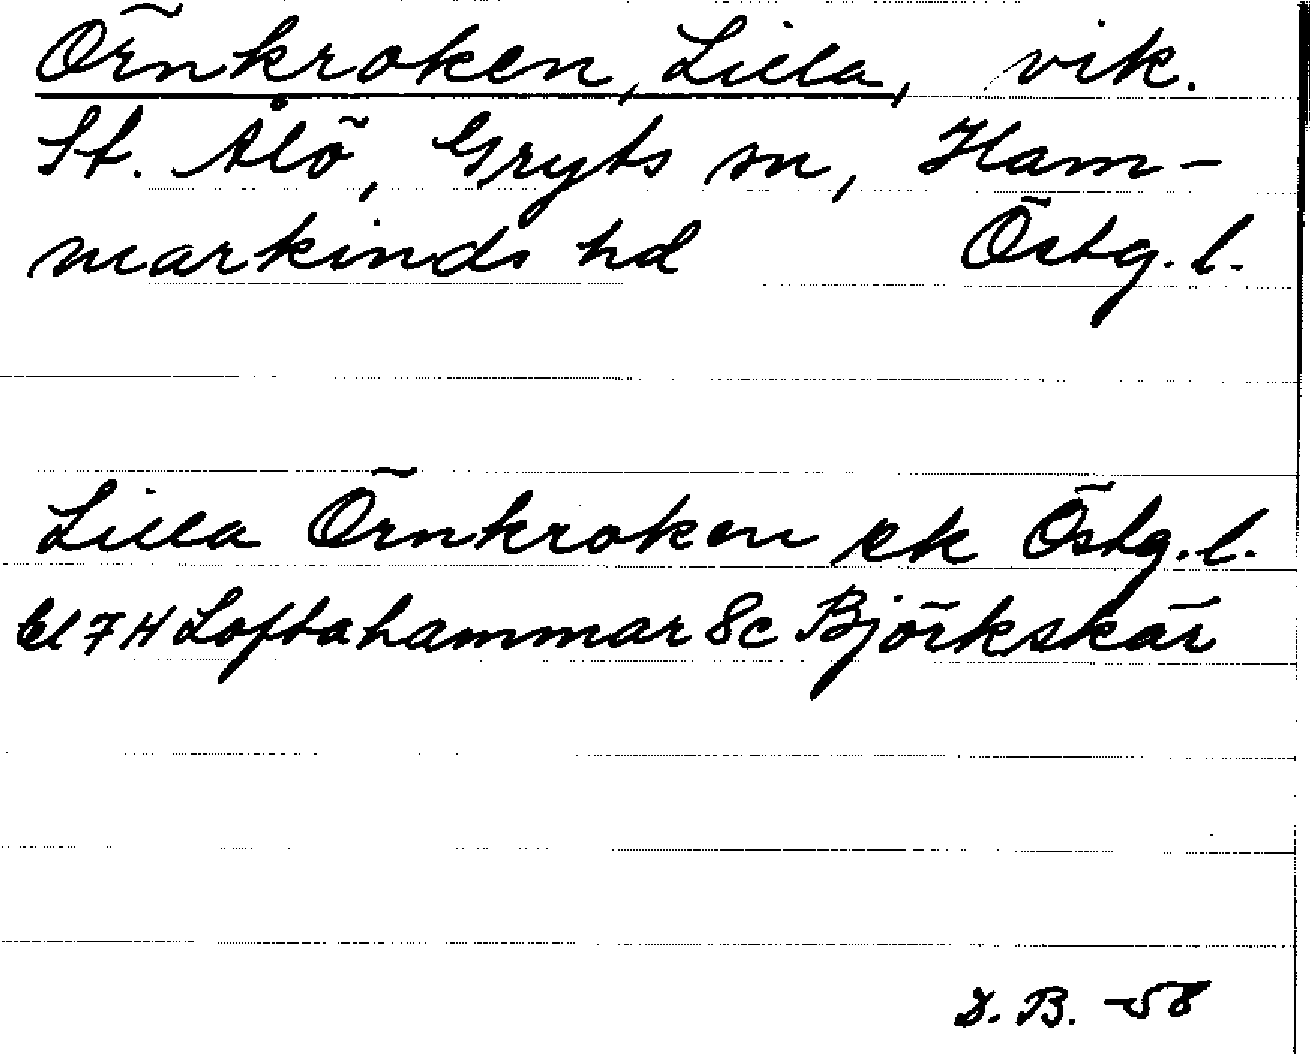 Örnkroken, Lilla, vik.
St. Ålö, Gryts sn, Ham-
markinds hd Östg. l.
Lilla Örnkroken ek Östg. l.
bl 7 H Loftahammar 8c Björkskär
D. B. -58